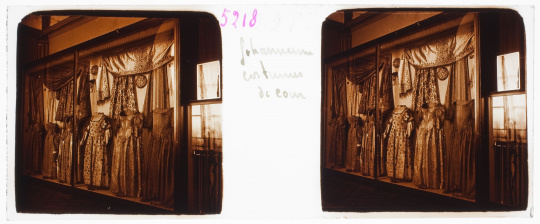 5218
costumes
de cour